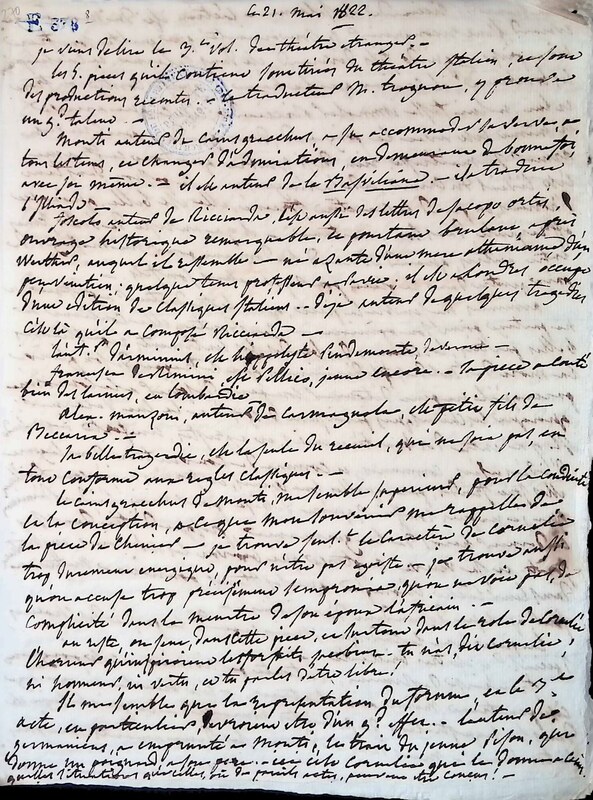 E 378
ce 21. mai 1822.
je viens de lire le 3.e vol. du theatre etranger. —
les 5. pieces qu'il contient sont tirées du theatre italien, ce sont
des productions recentes. — le traducteur M. trognon, y prouve
un g.d talent. —
Monti auteur de Caius gracchus, a su accommoder sa verve, a
tous les tems, et changer d'admirations, en demeurant de bonne foi,
avec soi même. — il est auteur de la Bassviliana — il a traduit
l'Iliade —
foscolo auteur de Ricciarda, l'est aussi des lettres de jacopo ortis,
ouvrage historique remarquable, et pourtant brulant, après
Werther, auquel il ressemble — né a zante d'une mere athenienne d'un
pere venitien; quelque tems professeur a Pavie, il est a londres occupé
d'une edition de classiques italiens. — deja auteur de quelques tragedies
c'est la qu'il a composé Ricciarda —
l'aut.r d'arminius, est hyppolite pindemonte de verone —
francesca de rimini, est de Pellico, jeune encore. — sa piece a couté
bien des larmes, en lombardie
alex. manzoni, auteur de Carmagnola, est petit fils de
Beccaria. —
sa belle tragedie, est la seule du recueil, qui ne soit pas, en
tout conforme aux regles classiques. —
le caius gracchus de Monti, me semble superieur, pour la conduite
et la conception, a ce que mon souvenir me rappelle de
la piece de Chenier — je trouve seul.t le caractere de Cornelie
trop durement energique, pour n'être pas egoïste — je trouve aussi
qu'on accuse trop précisément sempronia, qu'on ne voit pas, de
complicité dans le meurtre de son epoux l'africain. —
au reste, on sent, dans cette piece, et surtout dans le role de Cornelie
l'horreur qu'inspiroient les forfaits — tu n'as, dit Cornelie,
ni honneur, ni vertu, et tu parles d'être libre!
Il me semble que la representation du forum, et le 3.e
acte, en particulier, devroient être d'un g.d effet. — l'auteur de
germanicus, a emprunté a Monti, le trait du jeune Pison, qui
donne un poignard a son pere. — ici c'est Cornelie qui le donne a Caius
quelles situations que celles, où de pareils actes, peuvent être conçus! —